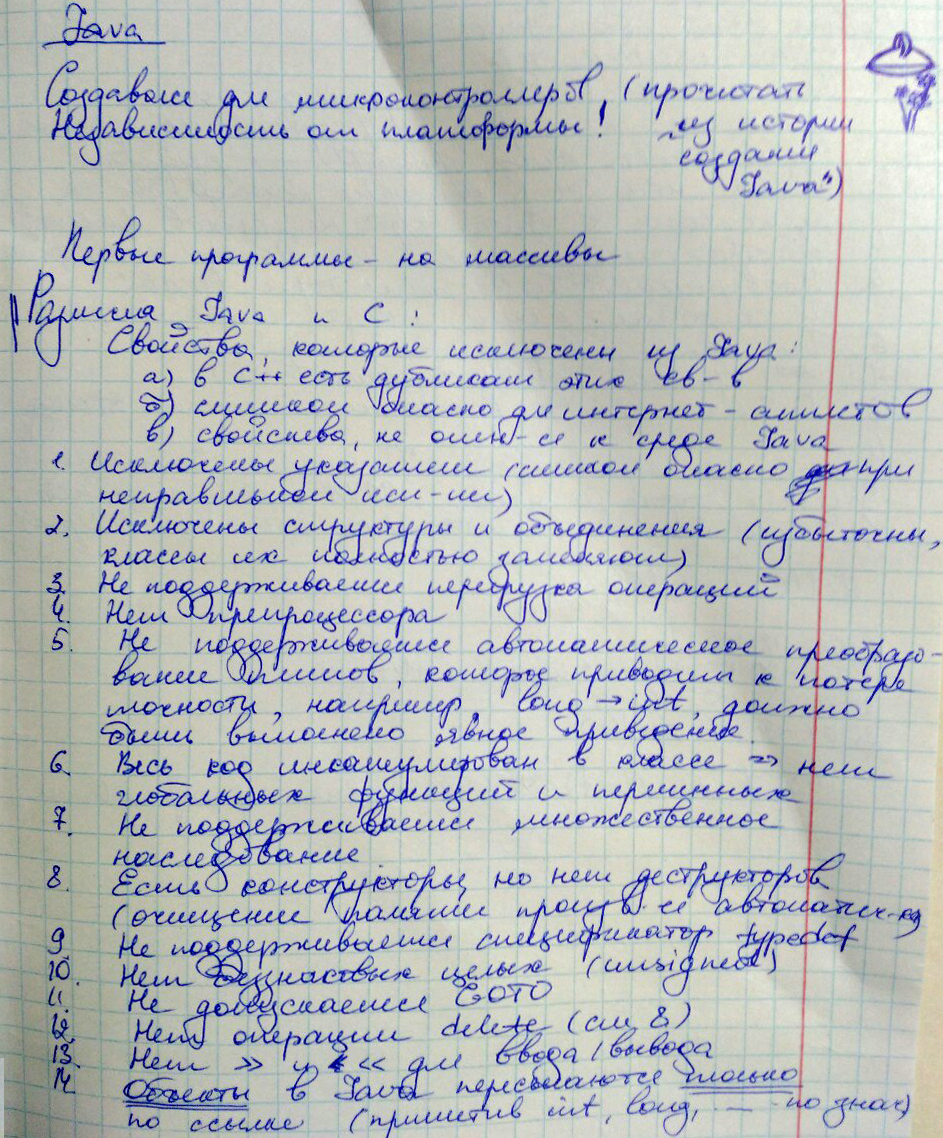 Java
Создавали для микроконтроллеров, (прочитать
Независимость от платформы! "из истории
создания
Java")
Первые программы - на массивы
Различия Java и C :
Свойства, которые исключены из Java:
а) в C++ есть дубликат этих св-в
б) слишком опасно для интернет-апплетов
в) свойства, не отн-ся к среде Java
1. Исключены указатели (слишком опасно при
неправильном исп-ии)
2. Исключены структуры и объединения (избыточны,
классы их полностью заменяют)
3. Не поддерживается перегрузка операций
4. Нет препроцессора
5. Не поддерживается автоматическое преобразо-
вание типов, которое приводит к потере
точности, например, long → int, должно
быть выполнено явное приведение
6. Весь код инкапсулирован в классе => нет
глобальных функций и переменных
7. Не поддерживается множественное
наследование
8. Есть конструкторы, но нет деструкторов
(очищение памяти произв-ся автоматич-ки)
9 Не поддерживается спецификатор typedef
10. Нет беззнаковых целых (unsigned)
11. Не допускается GOTO
12. Нет операции delete (см 8)
13. Нет >> и << для ввода/вывода
14 Объекты в Java пересылаются только
по ссылке (примитив int, long, ... по знач)